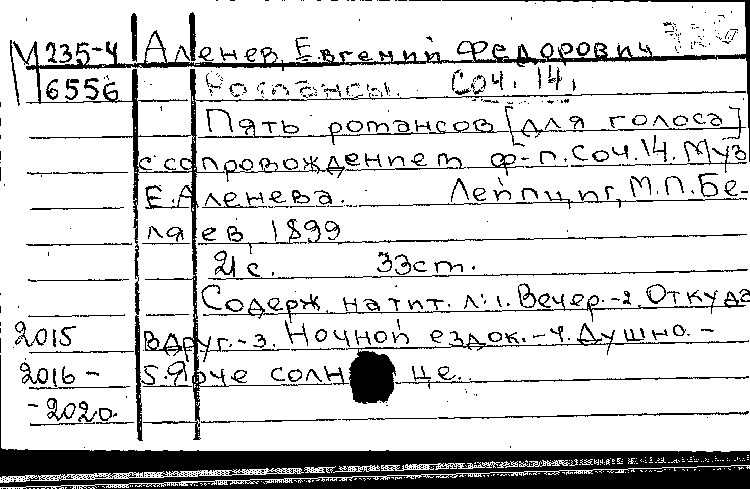 М 235-4 Аленев, Евгений Федорович
6556 Романсы. Соч. 14.
Пять романсов [для голоса]
с сопровождением ф-п. Соч. 14. Муз
Е. Аленева. Лейпциг, М.П. Бе-
ляев, 1899
21 с. 33 cm.
Содерж. на тит. л: 1. Вечер.-2. Откуда
2015 вдруг.-3. Ночной ездок.-4. Душно. -
2016 - 5. Ярче солнце.
- 2020.